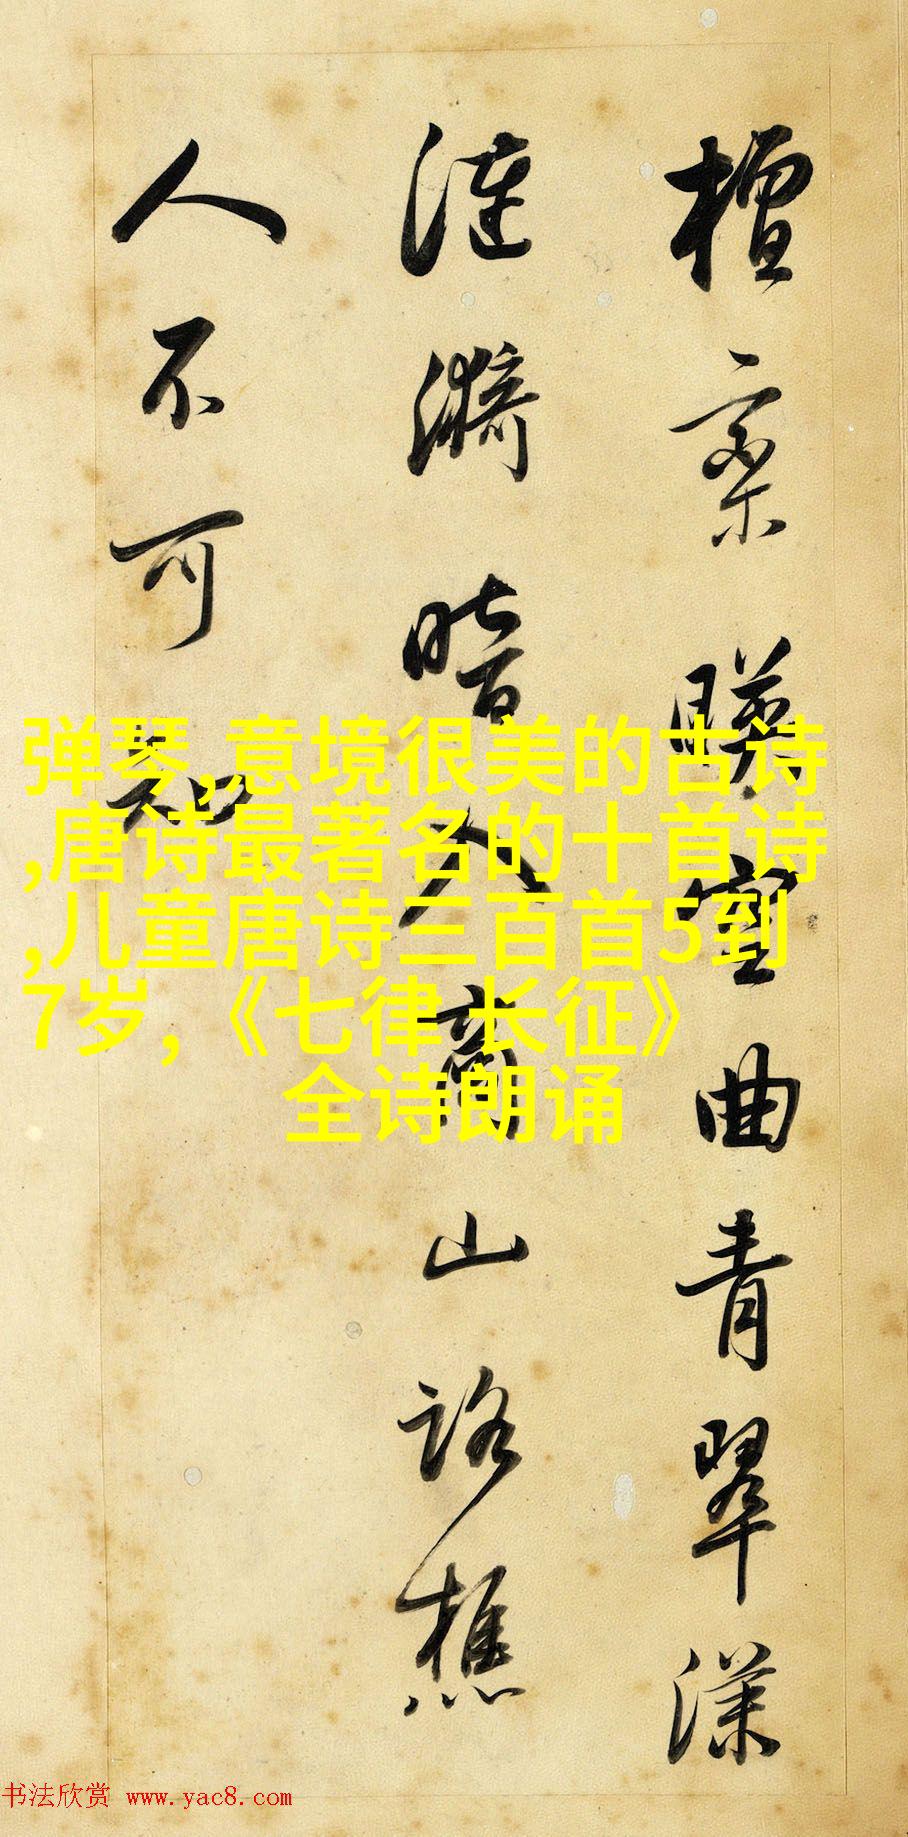 檀栾暎空曲青翠漾
漣漪暗入商山路樵
人不可知
弹琴,意境很美的古诗
,唐诗最著名的十首诗
,儿童唐诗三百首5到
7岁,《七律 长征》
全诗朗诵
书法欣赏 www.yac8.com